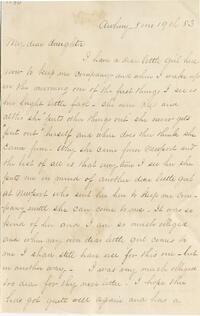 June 19th 83
My dear daughter
I have a dear little girl here
now to keep me company and when I wake up
in the morning one of the first things I see is
her bright little face. She never
altho' she puts other things out she never gets
put out herself and where does thee think she
came from. Why she came from Newport and
the best of all is that every time I see her she
puts me in mind of another dear little girl
at Newport who sent her here to keep me com-
pany until she can come to me. It was so
kind of her and I am so much obliged
and when my own dear little girl comes to
me I shall still have use for this one - but
in another way. - I was very much obliged
too dear for thy nice letter. I hope the
has got quite well again and has a